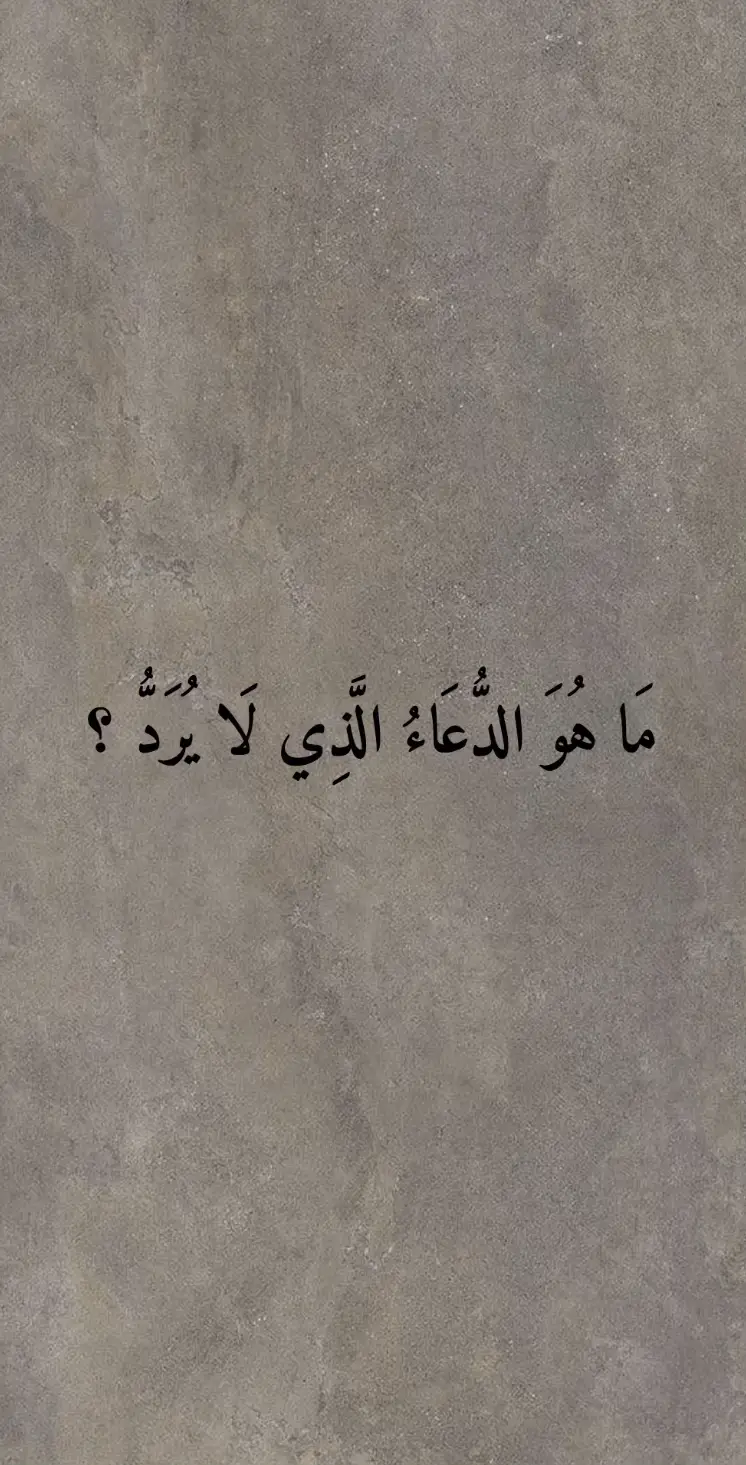 مَا هُوَ الدُّعَاءُ الَّذِي لَا يُرَدُّ ؟